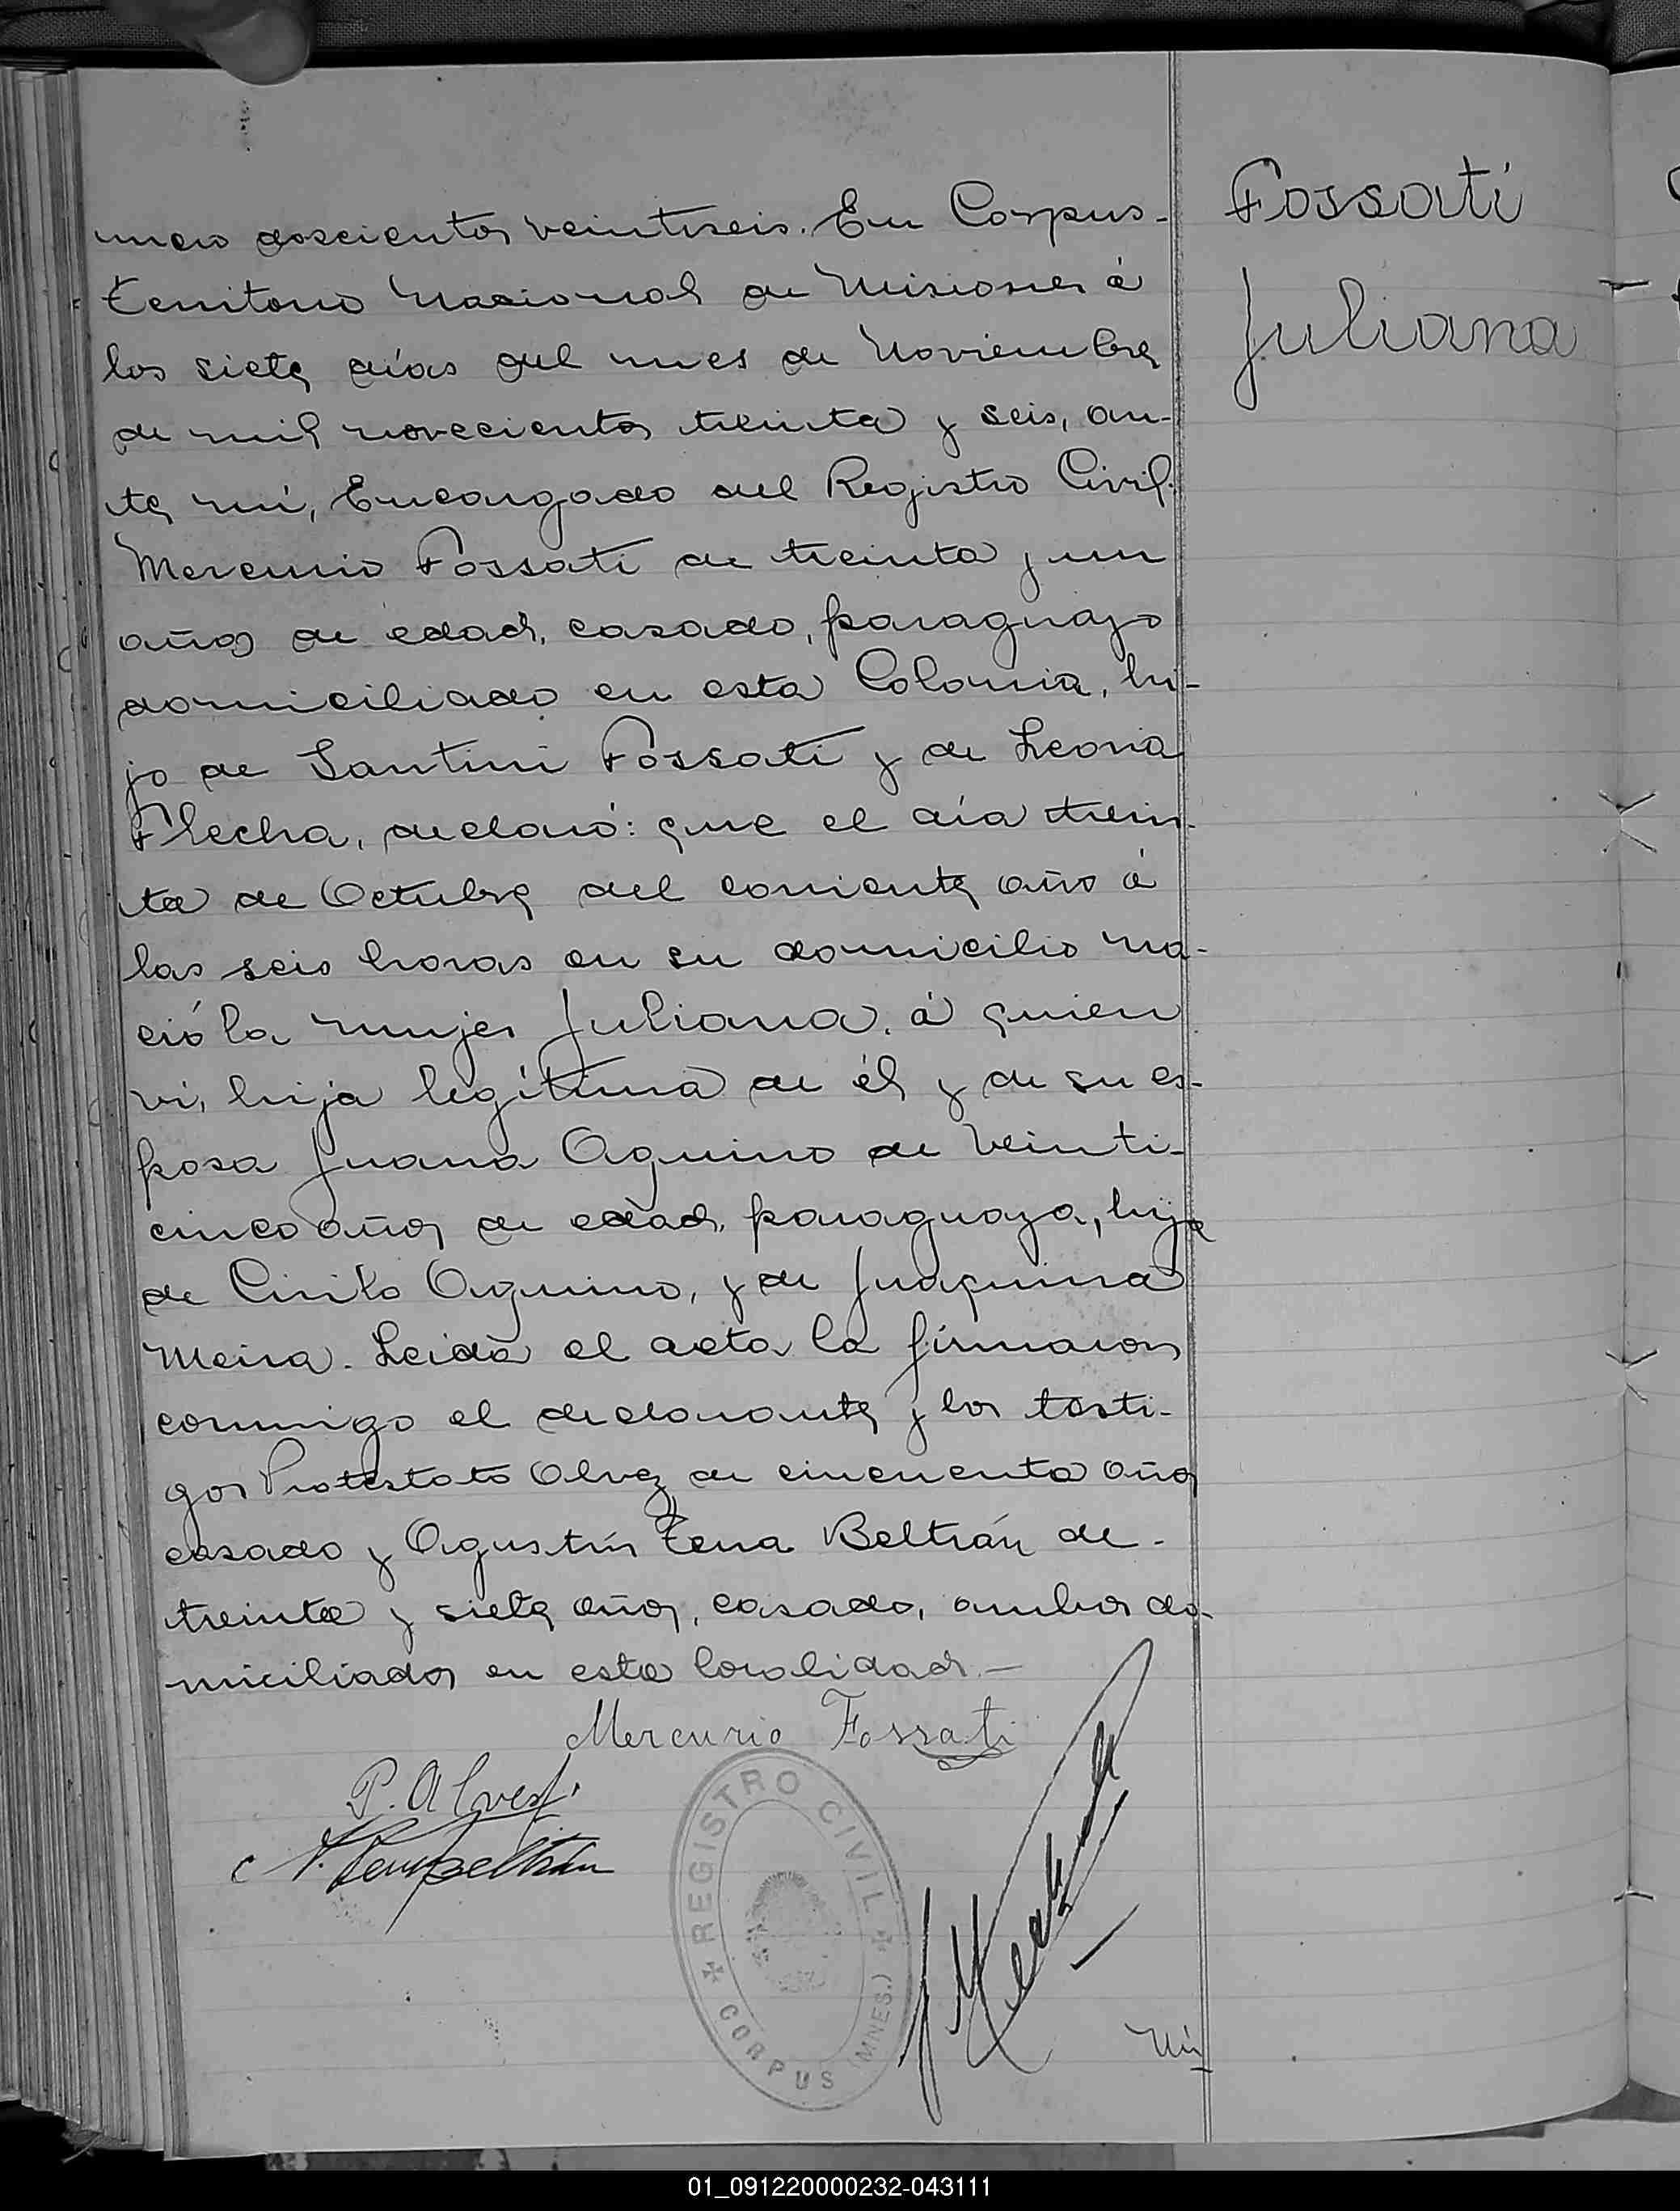 mero doscientos veintiseis. En Corpus-
territorio Nacional de Misiones á
los siete días del mes de Noviembre
de mil novecientos treinta y seis, an-
te mí, Encargado del Registro Civil.
Mercurio Fossati de treinta y un
años de edad, casado, paraguayo
domiciliado en esta Colonia, hi-
jo de Santini Fossati y de Leona
Flecha, declaró: que el día trein-
ta de Octubre del corriente año á
las seis horas en su domicilio na-
ció la mujer Juliana, á quien
vi, hija legítima de él y de su es-
posa Juana Aquino de veinti-
cinco años de edad, paraguaya, hija
de Cirilo Aquino, y de Juaquina
Meira. Leida el acta la firmaron
conmigo el declarante y los testi-
gos Protestato Alvez de cincuenta años
casado y Agustín Tena Beltrán de-
treinta y siete años, casado, ambos do-
miciliados en esta localidad.-
Mercurio Fossati
P. Alvez
A. Tena Beltrán
REGISTRO CIVIL
CORPUS (MNES.)
Nú
Fossati
Juliana
01_091220000232-043111